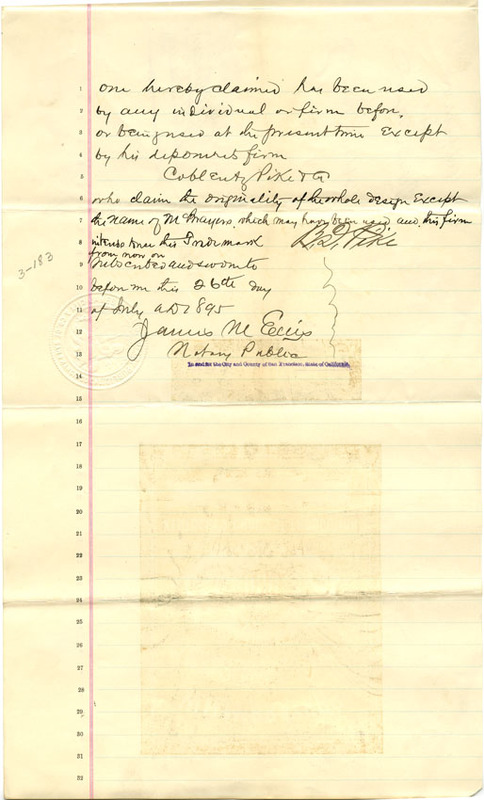 one hereby claimed has been used
by any individual or firm before,
or being used at the present time Except
by his deponents firm
Coblentz Pike & Co
who claim the originality of the whole design Except
the name of M Brayers, which may have been used and this firm
intends to use this Trademark
from now on
Subscribed and sworn to
before me this 26th day
of July AD 1895
B. D. Pike
James M Ellis
Notary Public
In and for the City and County of San Francisco, State of California.
3-183
1
2
3
4
5
6
7
8
9
10
11
12
13
14
15
16
17
18
19
20
21
22
23
24
25
26
27
28
29
30
31
32